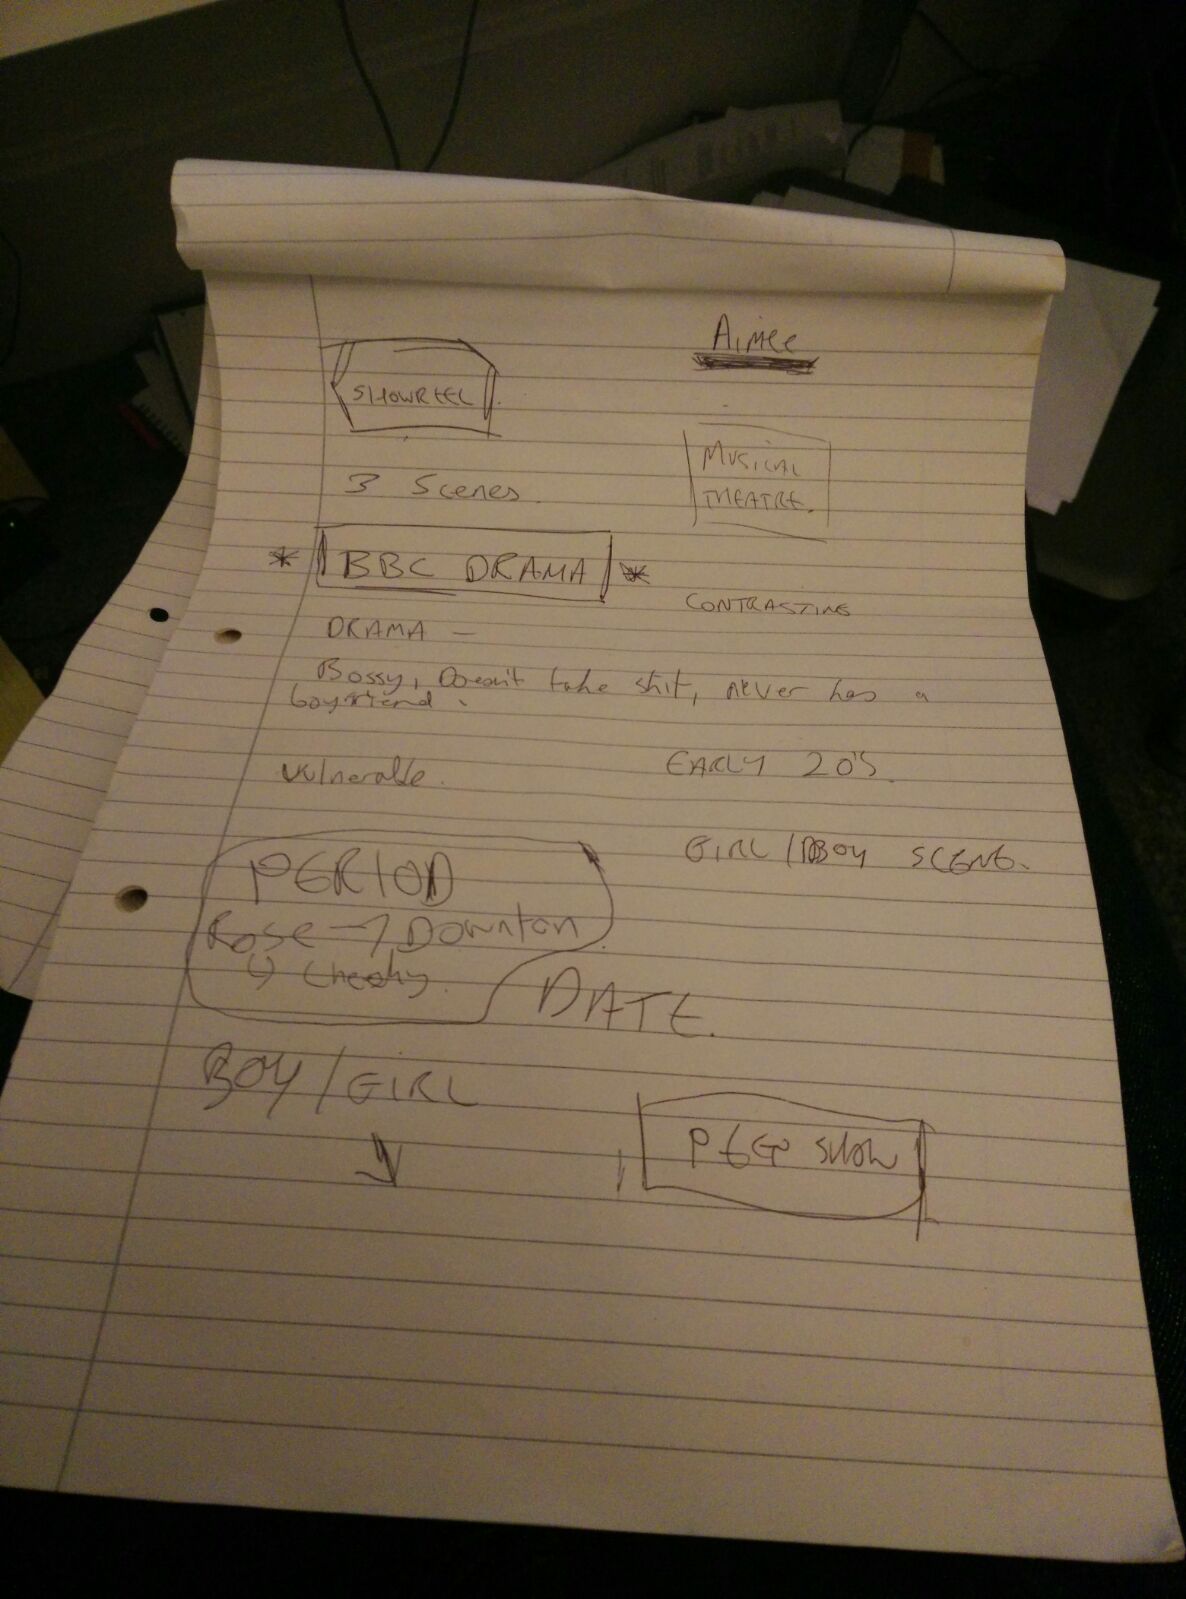 Aimee
SHOWREEL
MUSICAL
THEATRE.
3 Scenes.
* BBC DRAMA *
CONTRASTING
DRAMA —
Bossy, Doesn't take shit, never has a
boyfriend.
Vulnerable.
EARLY 20'S.
GIRL / BOY SCENE.
PERIOD
Rose → Downton
↳ Cheeky.
DATE.
BOY / GIRL
PEEP SHOW